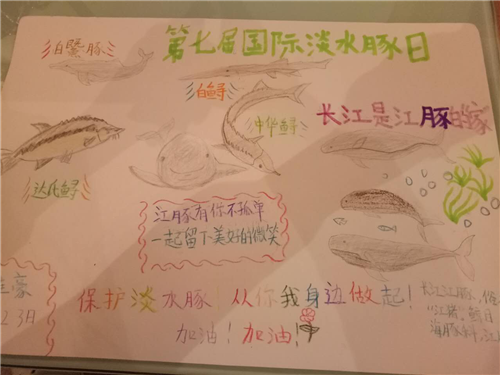 第七届国际淡水豚日
白鱀豚
白鲟
中华鲟
长江是江豚的家
达氏鲟
江豚有你不孤单
一起留下美好的微笑
保护淡水豚、从你我身边做起!
加油!加油!
长江江豚,俗
"江猪",鲸目
海豚科,江
豪
2 3日